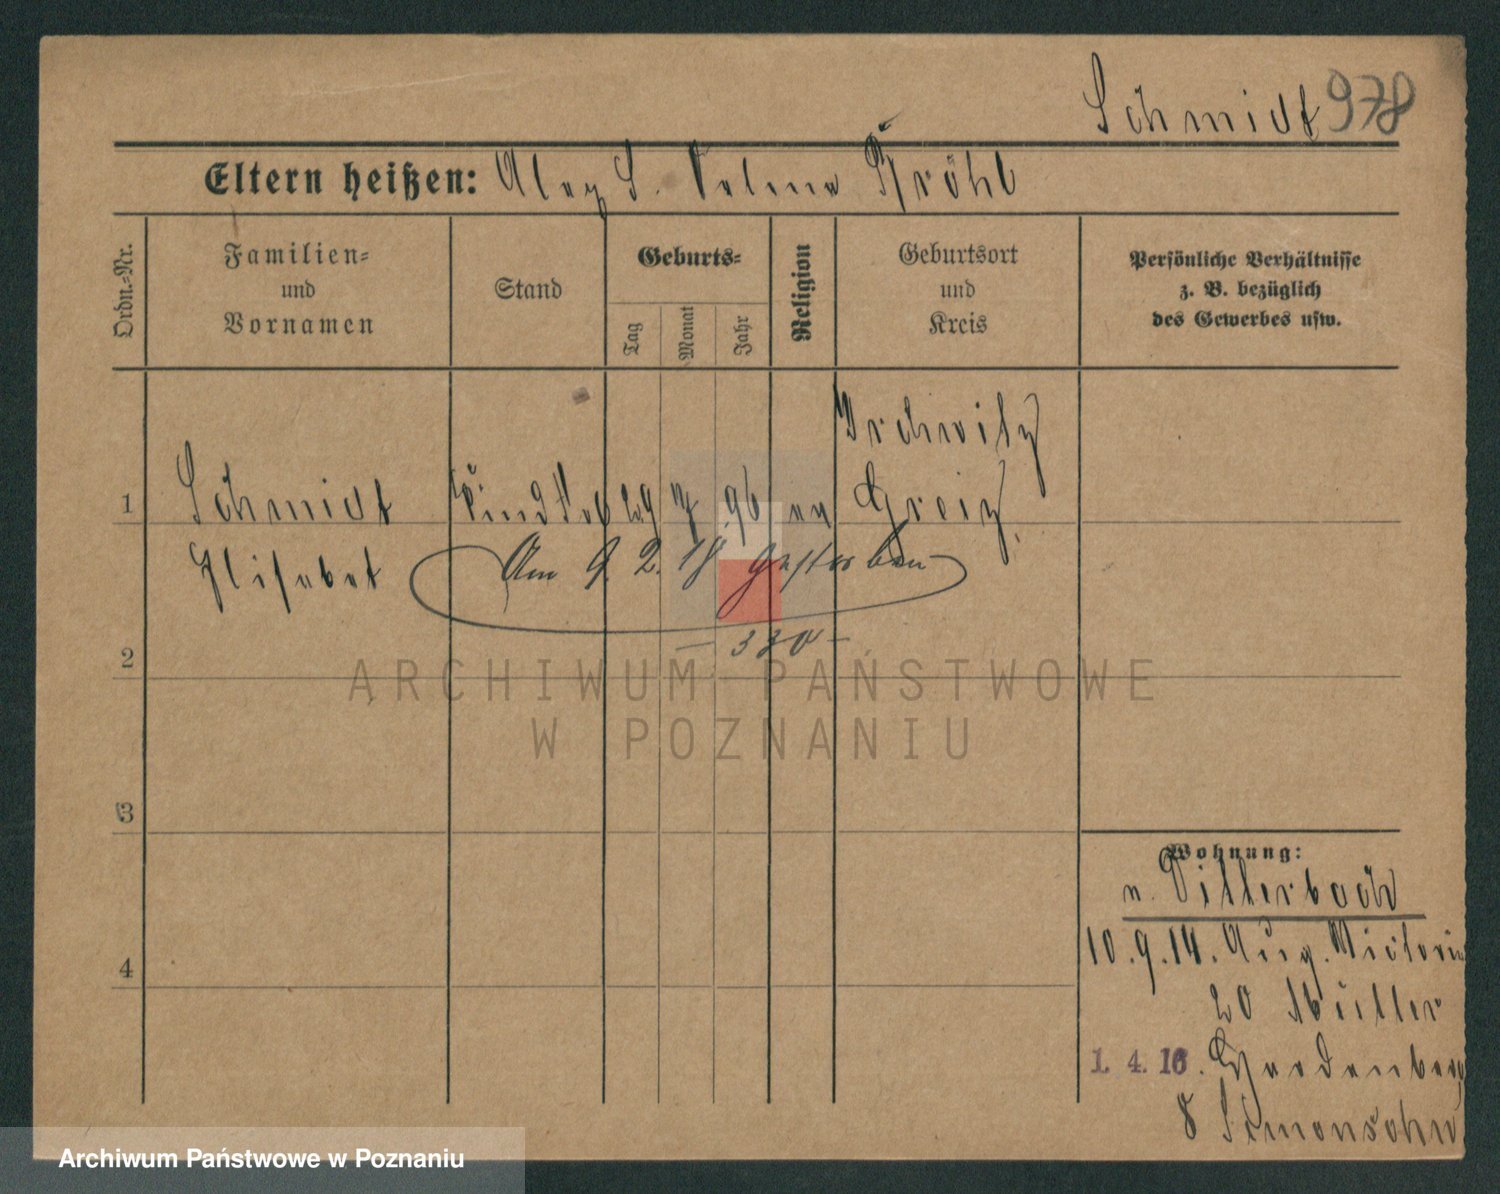 Schmidt 978
Eltern heißen: S. Selma Kröhl
Ordn.-Nr.
Familien-
und
Vornamen
Stand
Geburts-
Tag
Monat
Jahr
Religion
Geburtsort
und
Kreis
Persönliche Verhältnisse
z. B. bezüglich
des Gewerbes usw.
Irchwitz
1 Schmidt 29 7 96 Greiz
Elisabet Am 9. 2. 18 gestorben
- 330 -
2
ARCHIWUM PAŃSTWOWE
W POZNANIU
3
4
Wohnung:
10.9.14. Aug. Victoria
20 Müller
1. 4. 16.
8 Simonsohn
Archiwum Państwowe w Poznaniu